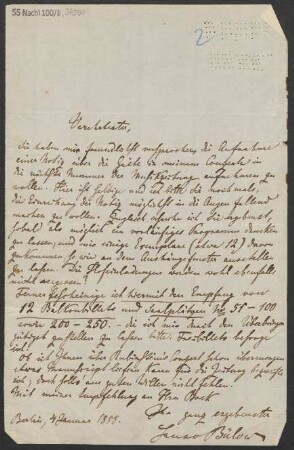 55 Nachl 100/B,
2
Verehrtester,
Sie haben mir freundlichst versprochen, die Aufnahme
einer Notiz über die Gäste in meinem Concerte in
die nächste Nummer der Musikzeitung
wollen. Hier ist selbige und ich bitte Sie nochmals,
die Einrichtung der Notiz möglichst in die Augen fallend
machen zu wollen. Zugleich ersuche ich Sie ergebenst,
sobald als möglich ein vorläufiges Programm drucken
zu lassen, und mir einige Exemplare (etwa 12) davon
zukommen so wie an dem Aushängefenster ausstellen
zu lassen. Die Hofeinladungen sind wohl ebenfalls
nicht vergessen?
Ferner bescheinige ich hiermit den Empfang von
12 Billets und No 51-100
sowie 200-250. - die ich mir durch den Überbringer
gütigst zustellen zu lassen bitte. Freibillets besorge
ich.
Ob ich Ihnen über Rubinsteins Concert schon übermorgen
etwas für die Zeitung
ich, doch solls am guten Willen nicht fehlen.
Mit meiner Empfehlung an Herrn Bock
Ihr ganz ergebenster
Berlin, 4 Januar 1855.
Hans v Bülow